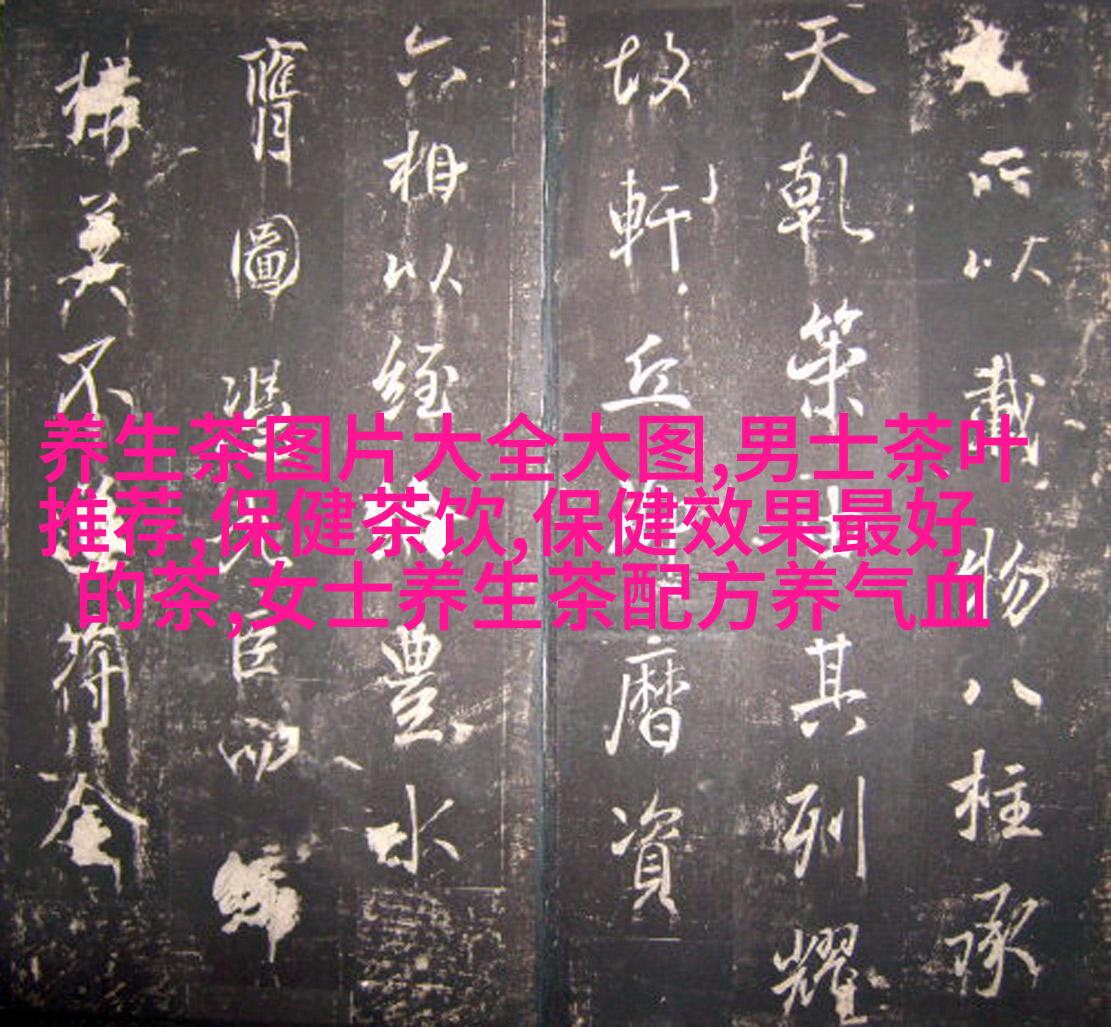 养生茶图片大全大图,男士茶叶
推荐,保健茶饮,保健效果最好
的茶,女士养生茶配方养气血
所以載物八柱承
天乾策其列耀
故軒丘曆資
六相以經豐水
膺圖臣
構美不符